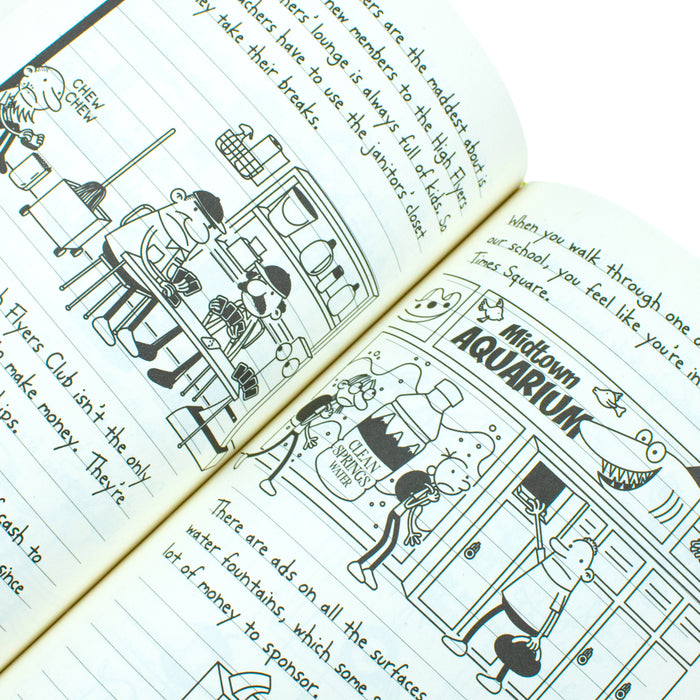 ers are the maddest about is
new members to the High Flyers
hers' lounge is always full of kids. So
achers have to use the janitors' closet
ey take their breaks.
CHEW
CHEW
Flyers Club isn't the only
to make money. They're
cash to
since
When you walk through one
our school, you feel like you're in
Times Square.
Midtown
AQUARIUM
CLEAN
SPRINGS
WATER
There are ads on all the surfaces
water fountains, which some
lot of money to sponsor.